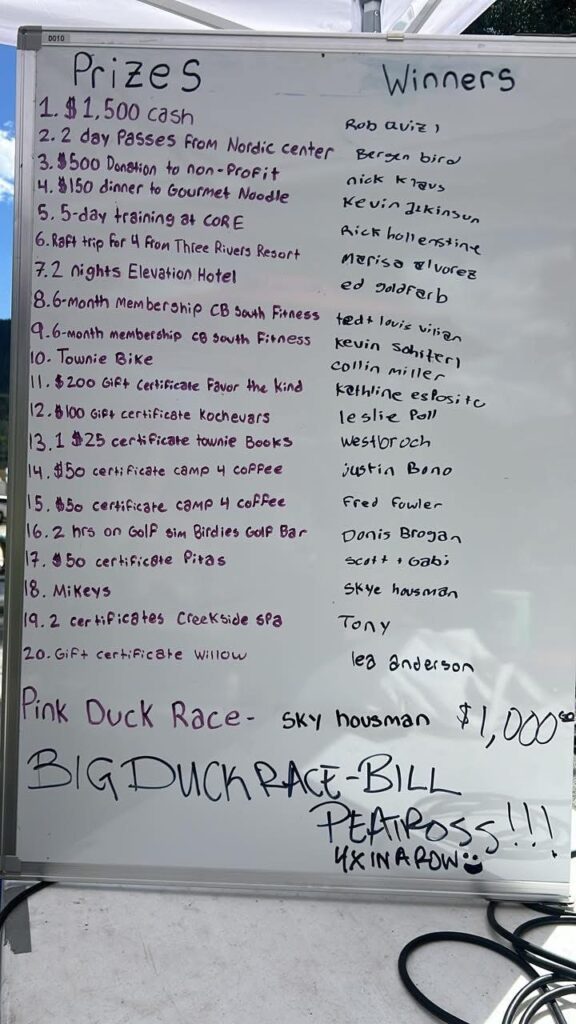 D010
Prizes Winners
1. $1,500 cash Rob aviz
2. 2 day Passes From Nordic center Bergen bird
3. $500 Donation to non-Profit nick klaus
4. $150 dinner to Gourmet Noodle Kevin
5. 5-day training at CORE Rick hollenstine
6. Raft trip For 4 From Three Rivers Resort Marisa alvorez
7. 2 nights Elevation Hotel ed goldfarb
8. 6-month Membership CB South Fitness louis
9. 6-month membership CB South Fitness Kevin
10. Townie Bike collin miller
11. $200 Gift Certificate Favor the Kind Kathline esposito
12. $100 Gift certificate Kochevars leslie Poll
13. 1 $25 certificate townie Books westbroch
14. $50 certificate camp 4 coffee justin Bono
15. $50 certificate camp 4 coffee Fred Fowler
16. 2 hrs on Golf sim Birdies Golf Bar Donis Brogan
17. $50 certificate Pitas scott + Gabi
18. Mikeys Skye housman
19. 2 certificates Creekside spa Tony
20. Gift certificate Willow lea anderson
Pink Duck Race - sky housman $1,000
BIG DUCK RACE - BILL
PEATROSS!!!
4X IN A ROW